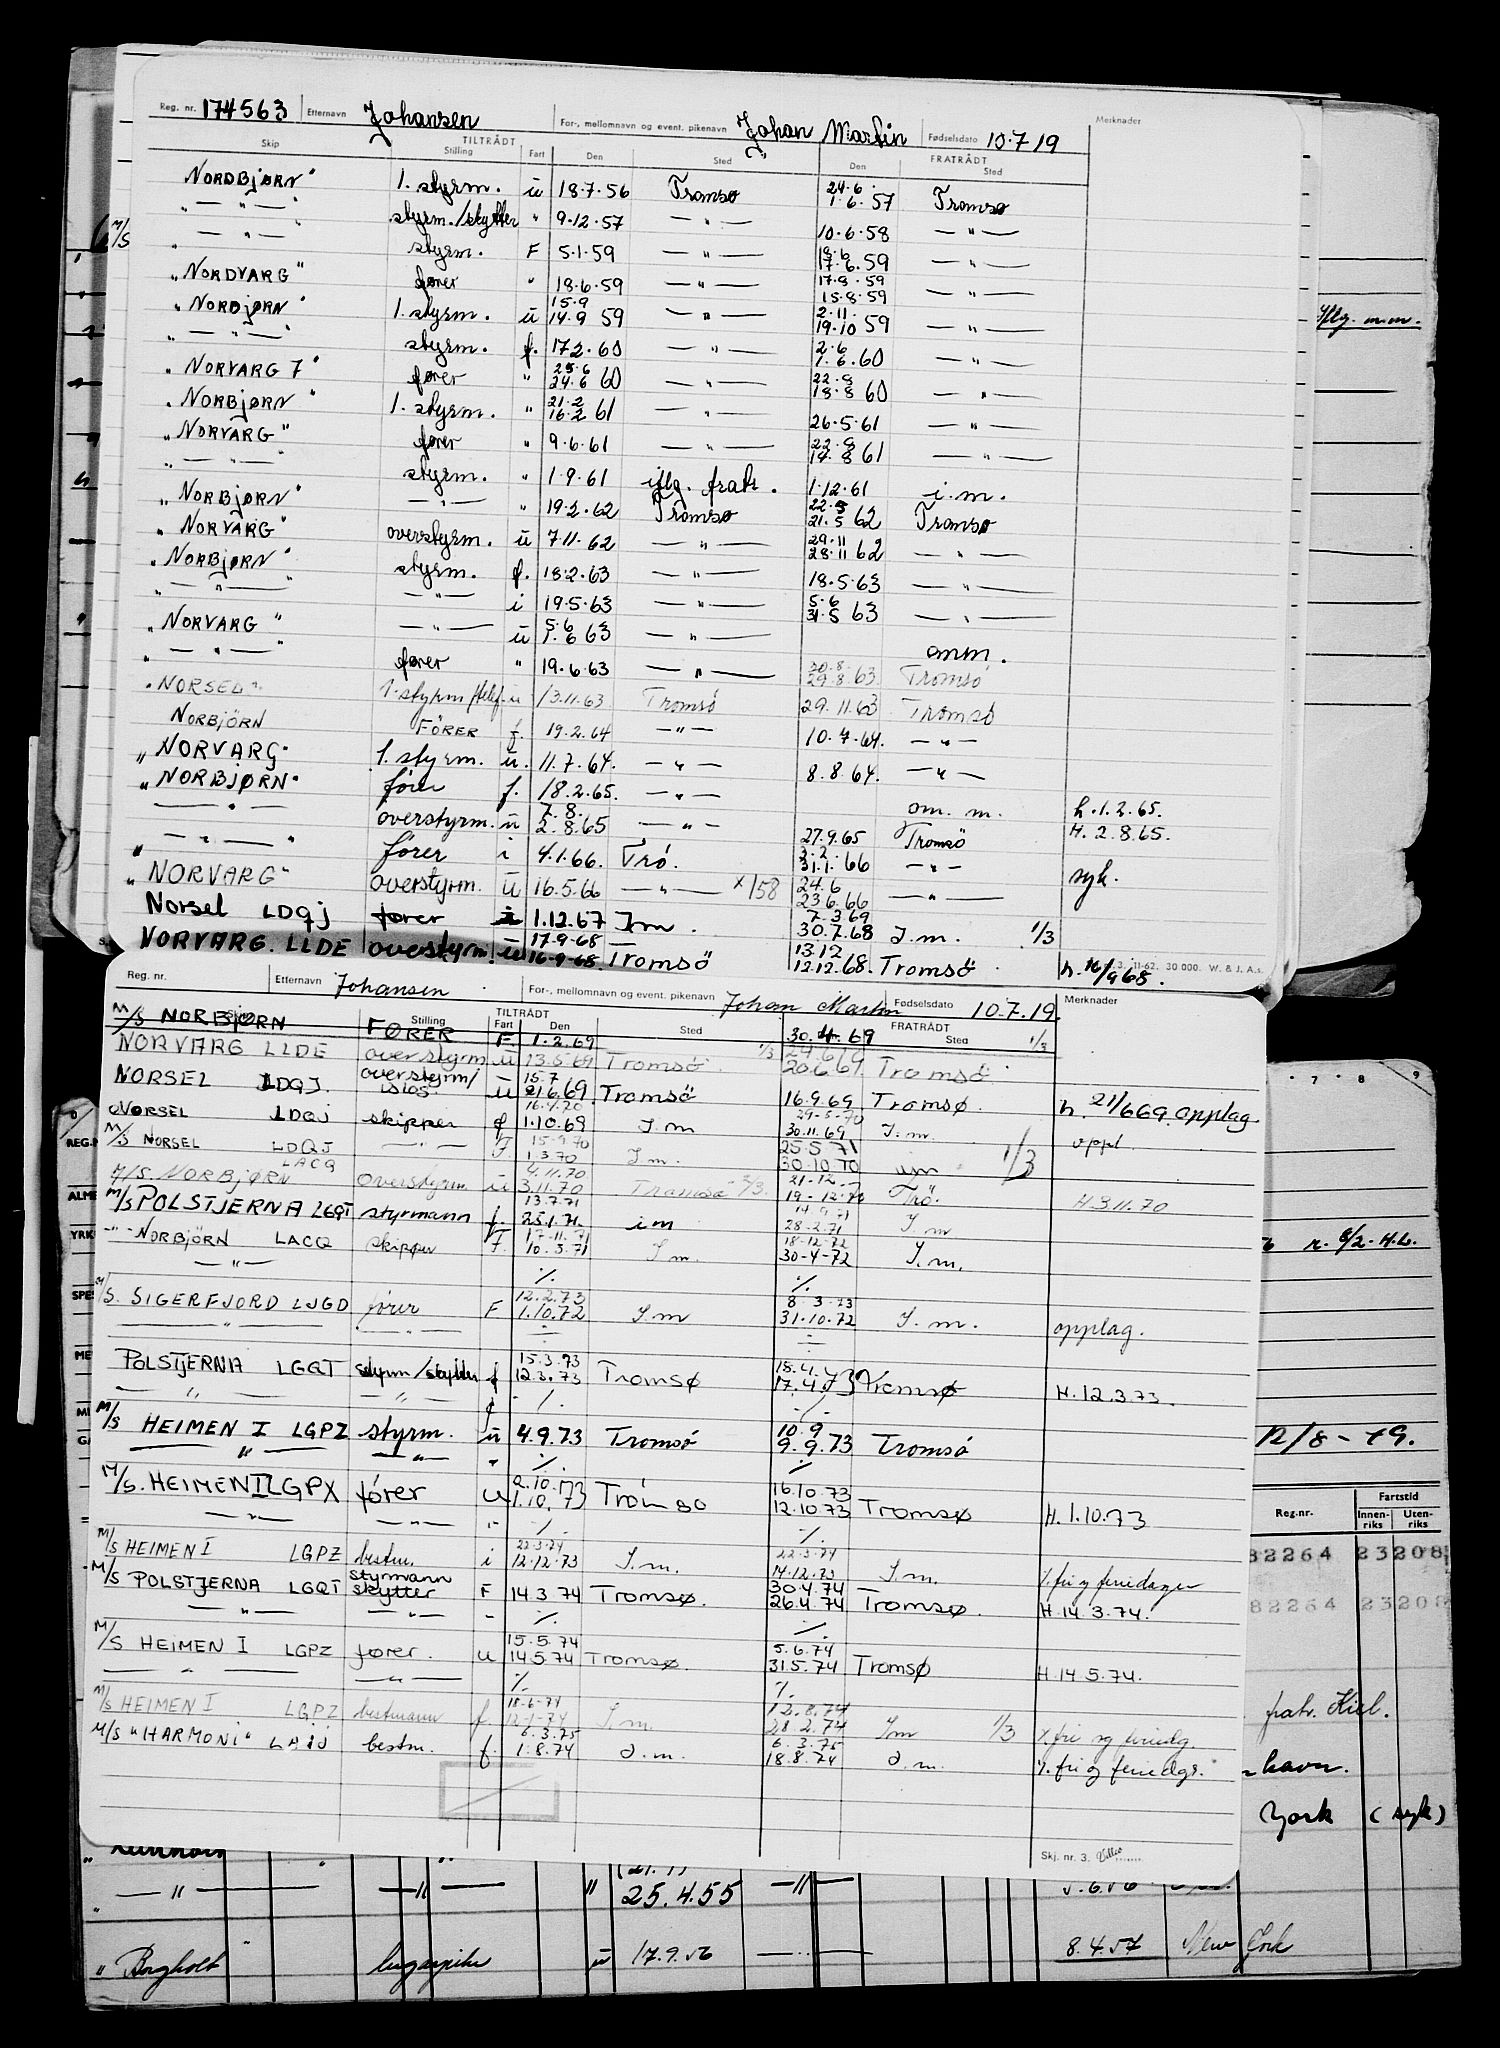 Reg. nr. 174563 Etternavn Johansen For-, mellomnavn og event. pikenavn Johan Martin Fødselsdato 10.7.19 Merknader
Skip TILTRÅDT Stilling Fart Den Sted FRATRÅDT Den Sted
NORDBJØRN" 1. styrm. u 18.7.56 Tromsø 24.6. 1.6.57 Tromsø
M/S — " — styrm./skytter " 9.12.57 — " — 10.6.58 — " —
" — " — styrm. F 5.1.59 — " — 18.6 17.6.59 — " —
" NORDVARG" fører " 18.6.59 — " — 17.8.59 15.8.59 — " —
" NORDBJØRN" 1. styrm. u 15.9 14.9 59 — " — 2.11. 19.10 59 — " —
" — " — styrm. f. 17.2.60 — " — 2.6 1.6.60 — " —
" NORVARG 7" fører " 25.6 24.6 60 — " — 22.8 18.8 60 — " —
" NORBJØRN" 1. styrm. " 21.2 16.2 61 — " — 26.5.61 — " —
" NORVARG" fører " 9.6.61 — " — 22.8 19.8 61 — " —
" — " — styrm. " 1.9.61 iflg. fratr. 1.12.61 i.m.
" NORBJØRN" — " — " 19.2.62 Tromsø 22.5 21.5 62 Tromsø
" NORVARG" overstyrm. u 7.11.62 — " — 29.11 28.11 62 — " —
" NORBJØRN" styrm. f. 18.2.63 — " — 18.5.63 — " —
" — " — — " — i 19.5.63 — " — 5.6 31.5 63 — " —
" NORVARG" — " — u 5.6 1.6 63 — " — omm.
" — " — fører " 19.6.63 — " — 30.8. 29.8.63 Tromsø
" NORSEL" 1. styrm/telef. u 13.11.63 Tromsö 29.11.63 Tromsö
NORBJÖRN FÖRER f. 19.2.64 — " — 10.7.64. — " —
" NORVARG" 1. styrm. u. 11.7.64. — " — 8.8.64. — " —
" NORBJØRN" fører f. 18.2.65. — " — om. m. h. 1.2.65.
— " — overstyrm. u 7.8. 2.8.65 — " — 27.9.65 Tromsö H. 2.8.65.
" — " — " fører i 4.1.66. Trö. 3.2. 31.1.66 — " — syk.
" NORVARG" overstyrm. u 16.5.66 — " — x/58 24.6 23.6.66 — " —
Norsel LDQJ fører i 1.12.67 I m. 7.3.69 30.7.68 I.m. 1/3
NORVARG. LLDE overstyrm. u 17.9.68 16.9.68. Tromsö 13.12 12.12.68. Tromsö h. 16/9 68.
11-62. 30 000. W. & J. A.s.
Reg. nr. Etternavn Johansen For-, mellomnavn og event. pikenavn Johan Martin Fødselsdato 10.7.19. Merknader
TILTRÅDT Stilling Fart Den Sted FRATRÅDT Sted
M/S NORBJØRN FØRER F. 1.2.69 30.4.69 1/3
NORVARG LLDE overstyrm u 13.5.69 Tromsö 1/3 29.6.69 20.6.69 Tromsö
NORSEL LDQJ. overstyrm/ u 15.7 21.6.69 Tromsö 16.9.69 Tromsø. h. 21/6 69. opplag.
NORSEL LDQJ skipper f 16.4.70 1.10.69 I m 29.5.70 30.11.69 I.m. oppl.
M/S NORSEL LDQJ — " — F. 15.9.70 1.3.70 I m. 25.5.71 30.10.70 i m 1/3
M/S. NORBJØRN LACQ overstyrm u 4.11.70 3.11.70 Tromsö 21.12. 19-12-70 Trö. H. 3.11.70
M/S POLSTJERNA LGQT styrmann f. 13.7.71 25.1.71. i m 14.9.71 28.2.71 I.m
— " — NORBJÖRN LACQ skipper F. 17.11.71 10.3.71 I m. 18-12-72 30-4-72 I.m.
— " — % %
M/S. SIGERFJORD LJGD fører F 12.2.73 1.10.72 I m 8.3.73 31.10.72 I.m. opplag.
— " — — " —
POLSTJERNA LGQT styrm/skytter f 15.3.73 12.3.73 Tromsø 18.4. 17.4.73 Tromsø H. 12.3.73.
— " — — " — f % %
M/S HEIMEN I LGPZ styrm. u 4.9.73 Tromsö 10.9 9.9.73 Tromsö
— " — — " — " % %
M/S. HEIMEN II LGPX fører u 2.10.73 1.10.73 Tromsø 16.10.73 12.10.73 Tromsø H. 1.10.73
— " — — " — " % %
M/S HEIMEN I LGPZ bestm. i 22.3.74 12.12.73 I.m. 22.3.74 14.12.73 I.m. % fri og feriedager
M/S POLSTJERNA LGQT styrmann skytter F 14.3.74 Tromsø. 30.4.74 26.4.74 Tromsø. H. 14.3.74.
— " — — " — - % %
M/S HEIMEN I LGPZ fører. u 15.5.74 14.5.74 Tromsø. 5.6.74 31.5.74 Tromsø H. 14.5.74.
— " — — " — % %
M/S HEIMEN I LGPZ bestmann f. 18.6.74 12.1.74 I.m. 12.8.74 28.2.74 I m 1/3 % fri og feriedg.
M/S "HARMONI" bestm. f. 6.3.75 1.8.74 I.m. 6.3.75 18.8.74 I.m. % fri og feriedgr.
Skj. nr. 3.
— " — — " — " 25.4.55 — " —
" Borgholt " u 17.9.56 — " — 8.4.57 New York
iflg. m.m.
7 8 9
REG.N
YRK
r. 6/2. H.L.
12/8 - 79.
Reg.nr. Fartstid
Innen- riks Uten- riks
82264 23208
82264 23208
fratr. Kiel.
havn.
York (syk)